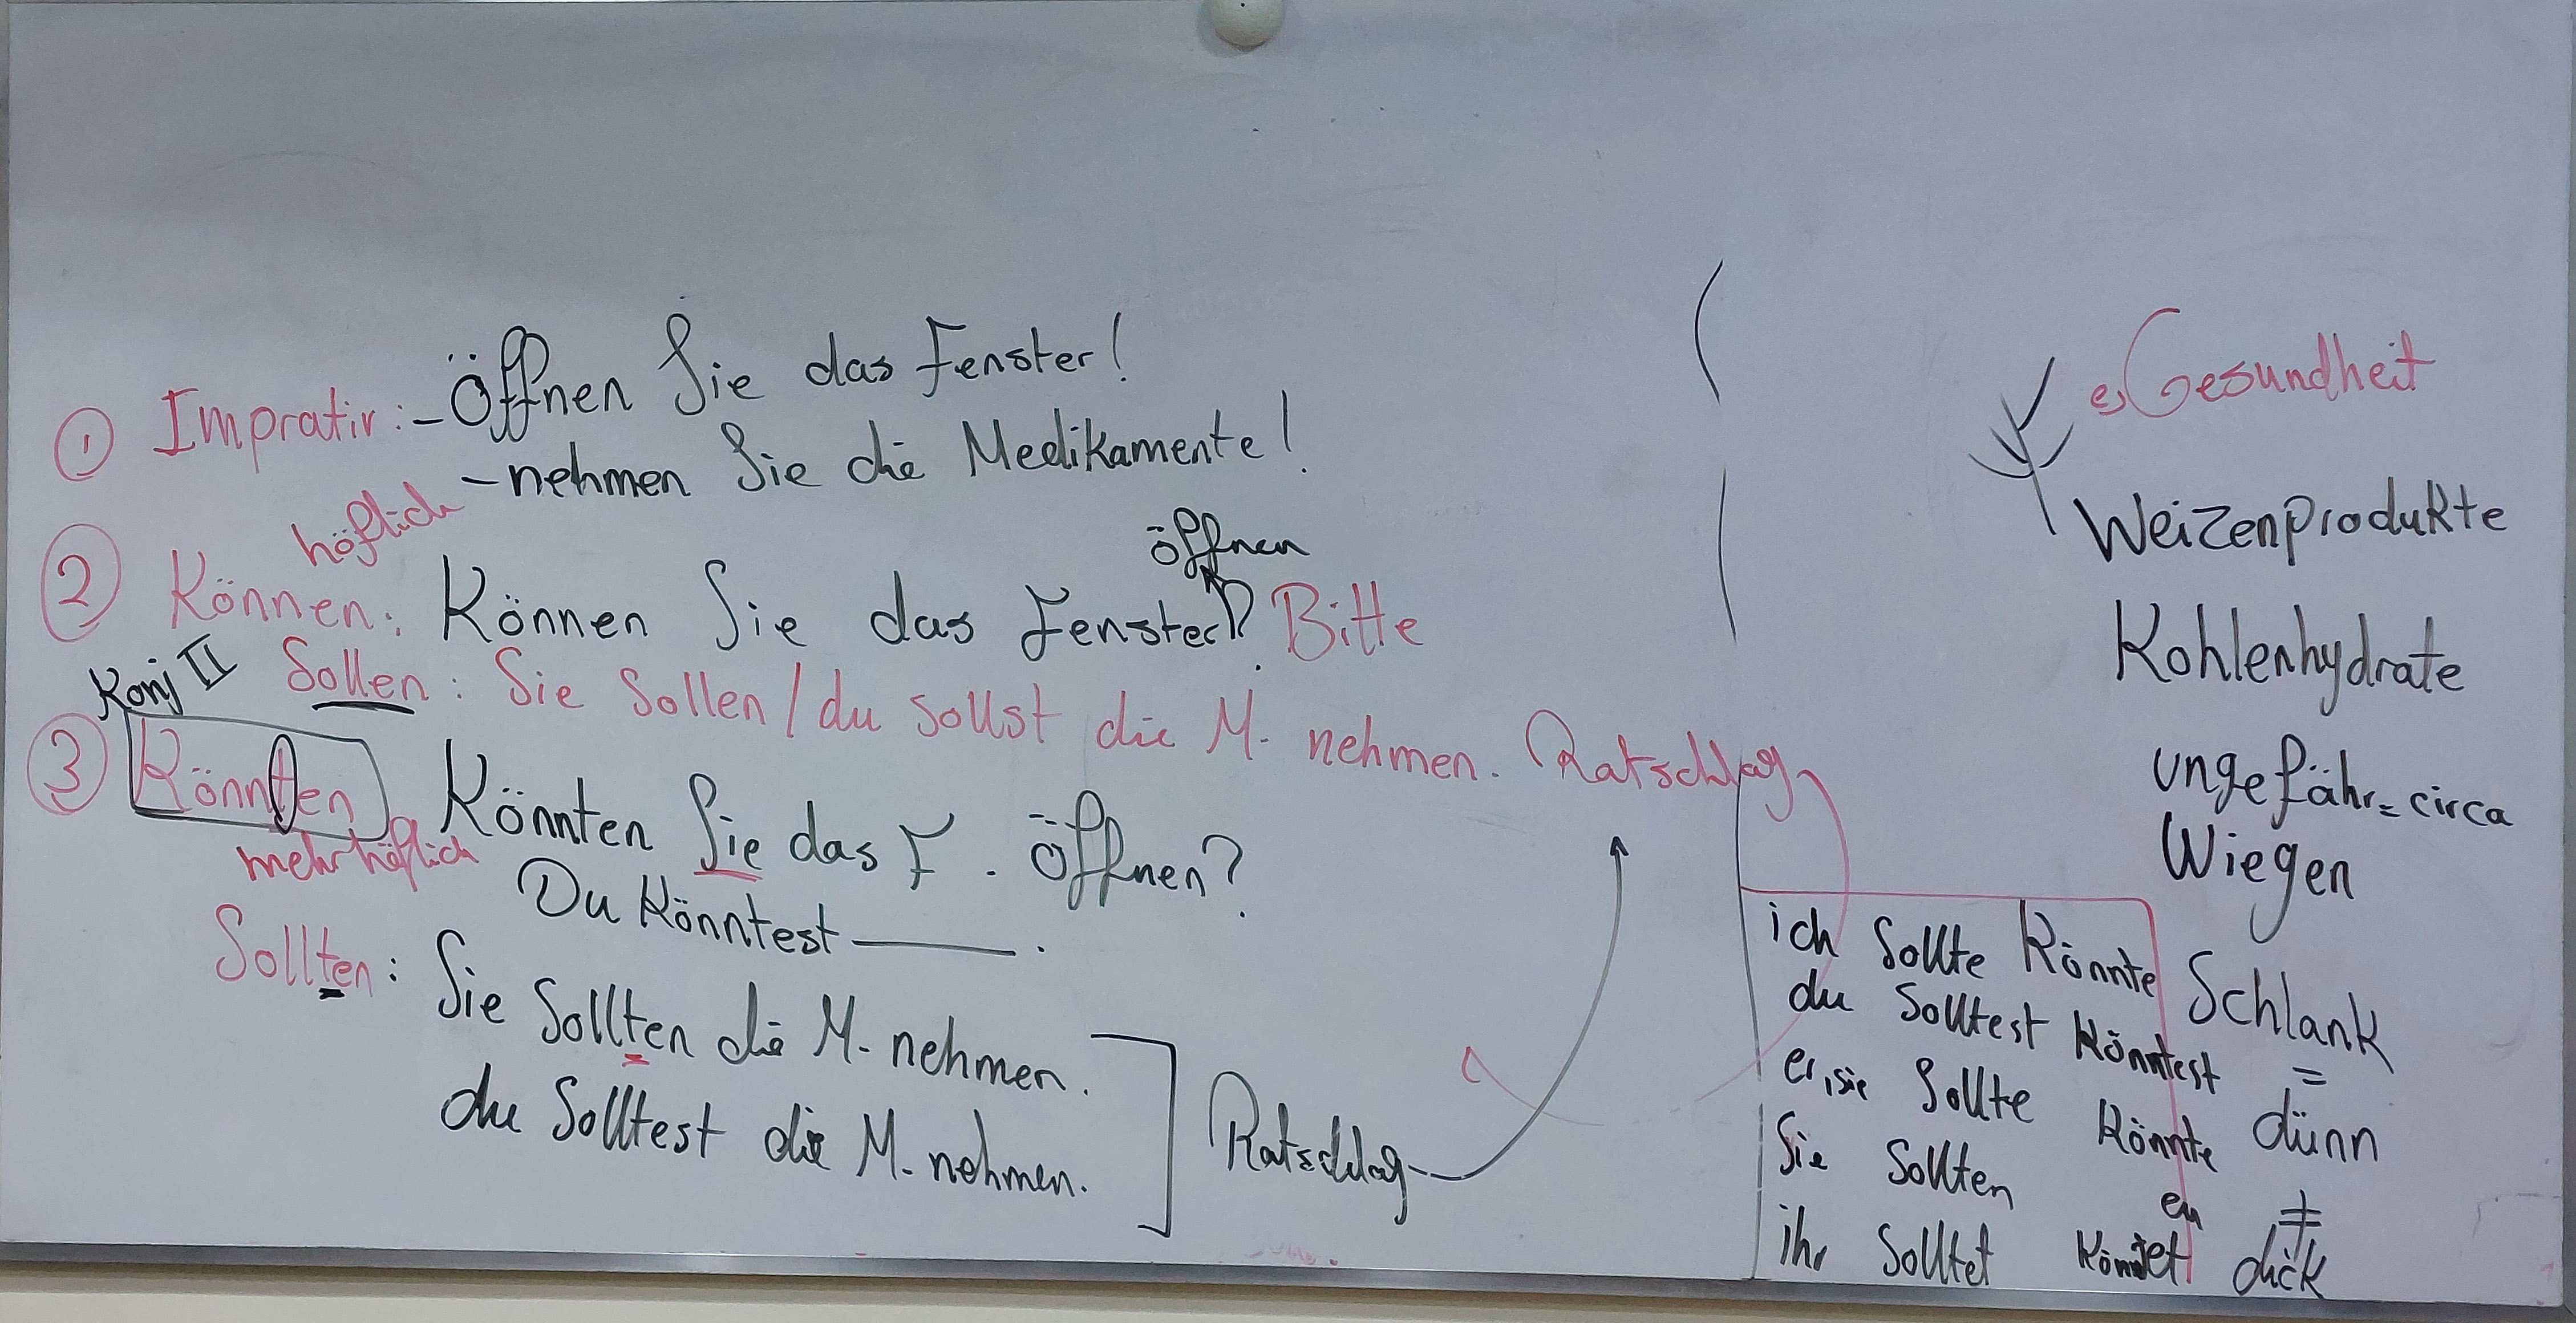 ① Impratir: - Öffnen Sie das Fenster!
- nehmen Sie die Medikamente!
höflich
öffnen
② Können: Können Sie das Fenster? Bitte
Sollen: Sie Sollen / du sollst die M. nehmen. Ratschlag
Konj II
③ Könnten Könnten Sie das F. Öffnen?
mehr höflich
Du Könntest ——.
Sollten: Sie Sollten die M. nehmen.
du Solltest die M. nehmen.
Ratschlag
e, Gesundheit
Weizenprodukte
Kohlenhydrate
ungefähr = circa
Wiegen
Schlank
=
dünn
≠
dick
ich Sollte Könnte
du Solltest Könntest
er, sie Sollte Könnte
Sie Sollten en
ihr Solltet Könntet